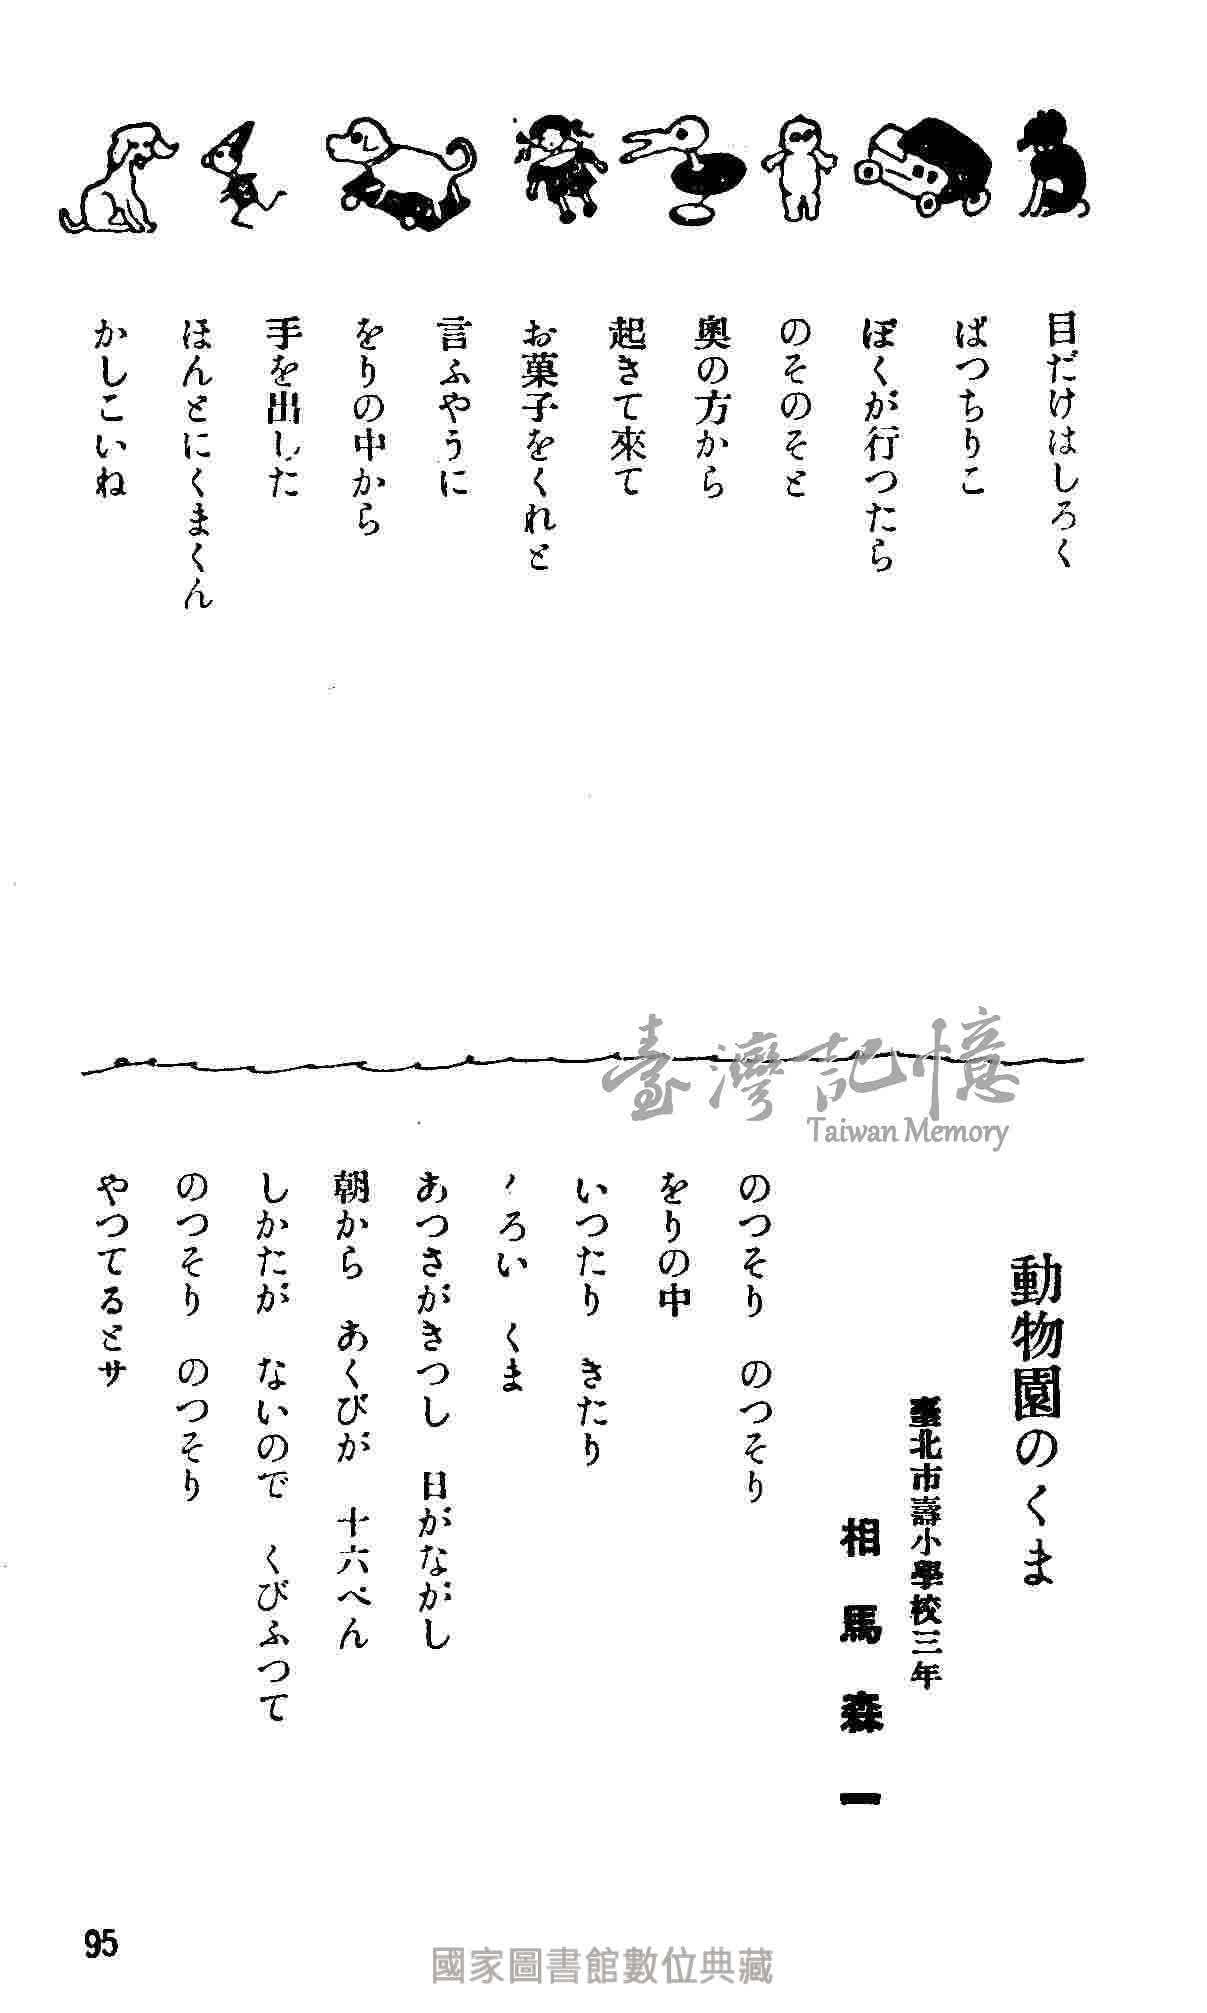 目だけはしろく
ばつちりこ
ぼくが行つたら
のそのそと
奥の方から
起きて來て
お菓子をくれと
言ふやうに
をりの中から
手を出した
ほんとにくまくん
かしこいね
臺灣記憶
Taiwan Memory
動物園のくま
臺北市壽小學校三年
相馬森一
のつそり のつそり
をりの中
いつたり きたり
ろい くま
あつさがきつし 日がながし
朝から あくびが 十六ぺん
しかたが ないので くびふつて
のつそり のつそり
やつてるとサ
95
國家圖書館數位典藏